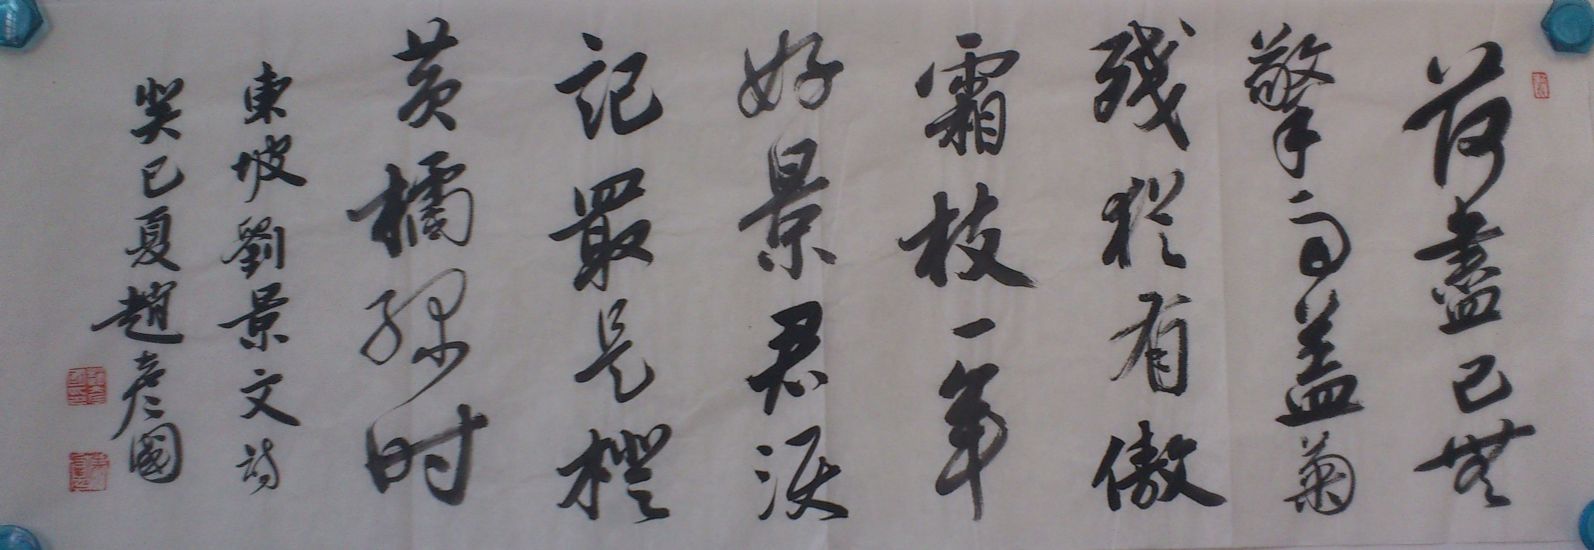 荷盡已無
擎雨蓋菊
殘猶有傲
霜枝一年
好景君須
記最是橙
黄橘綠时
東坡劉景文詩
癸巳夏趙彦國